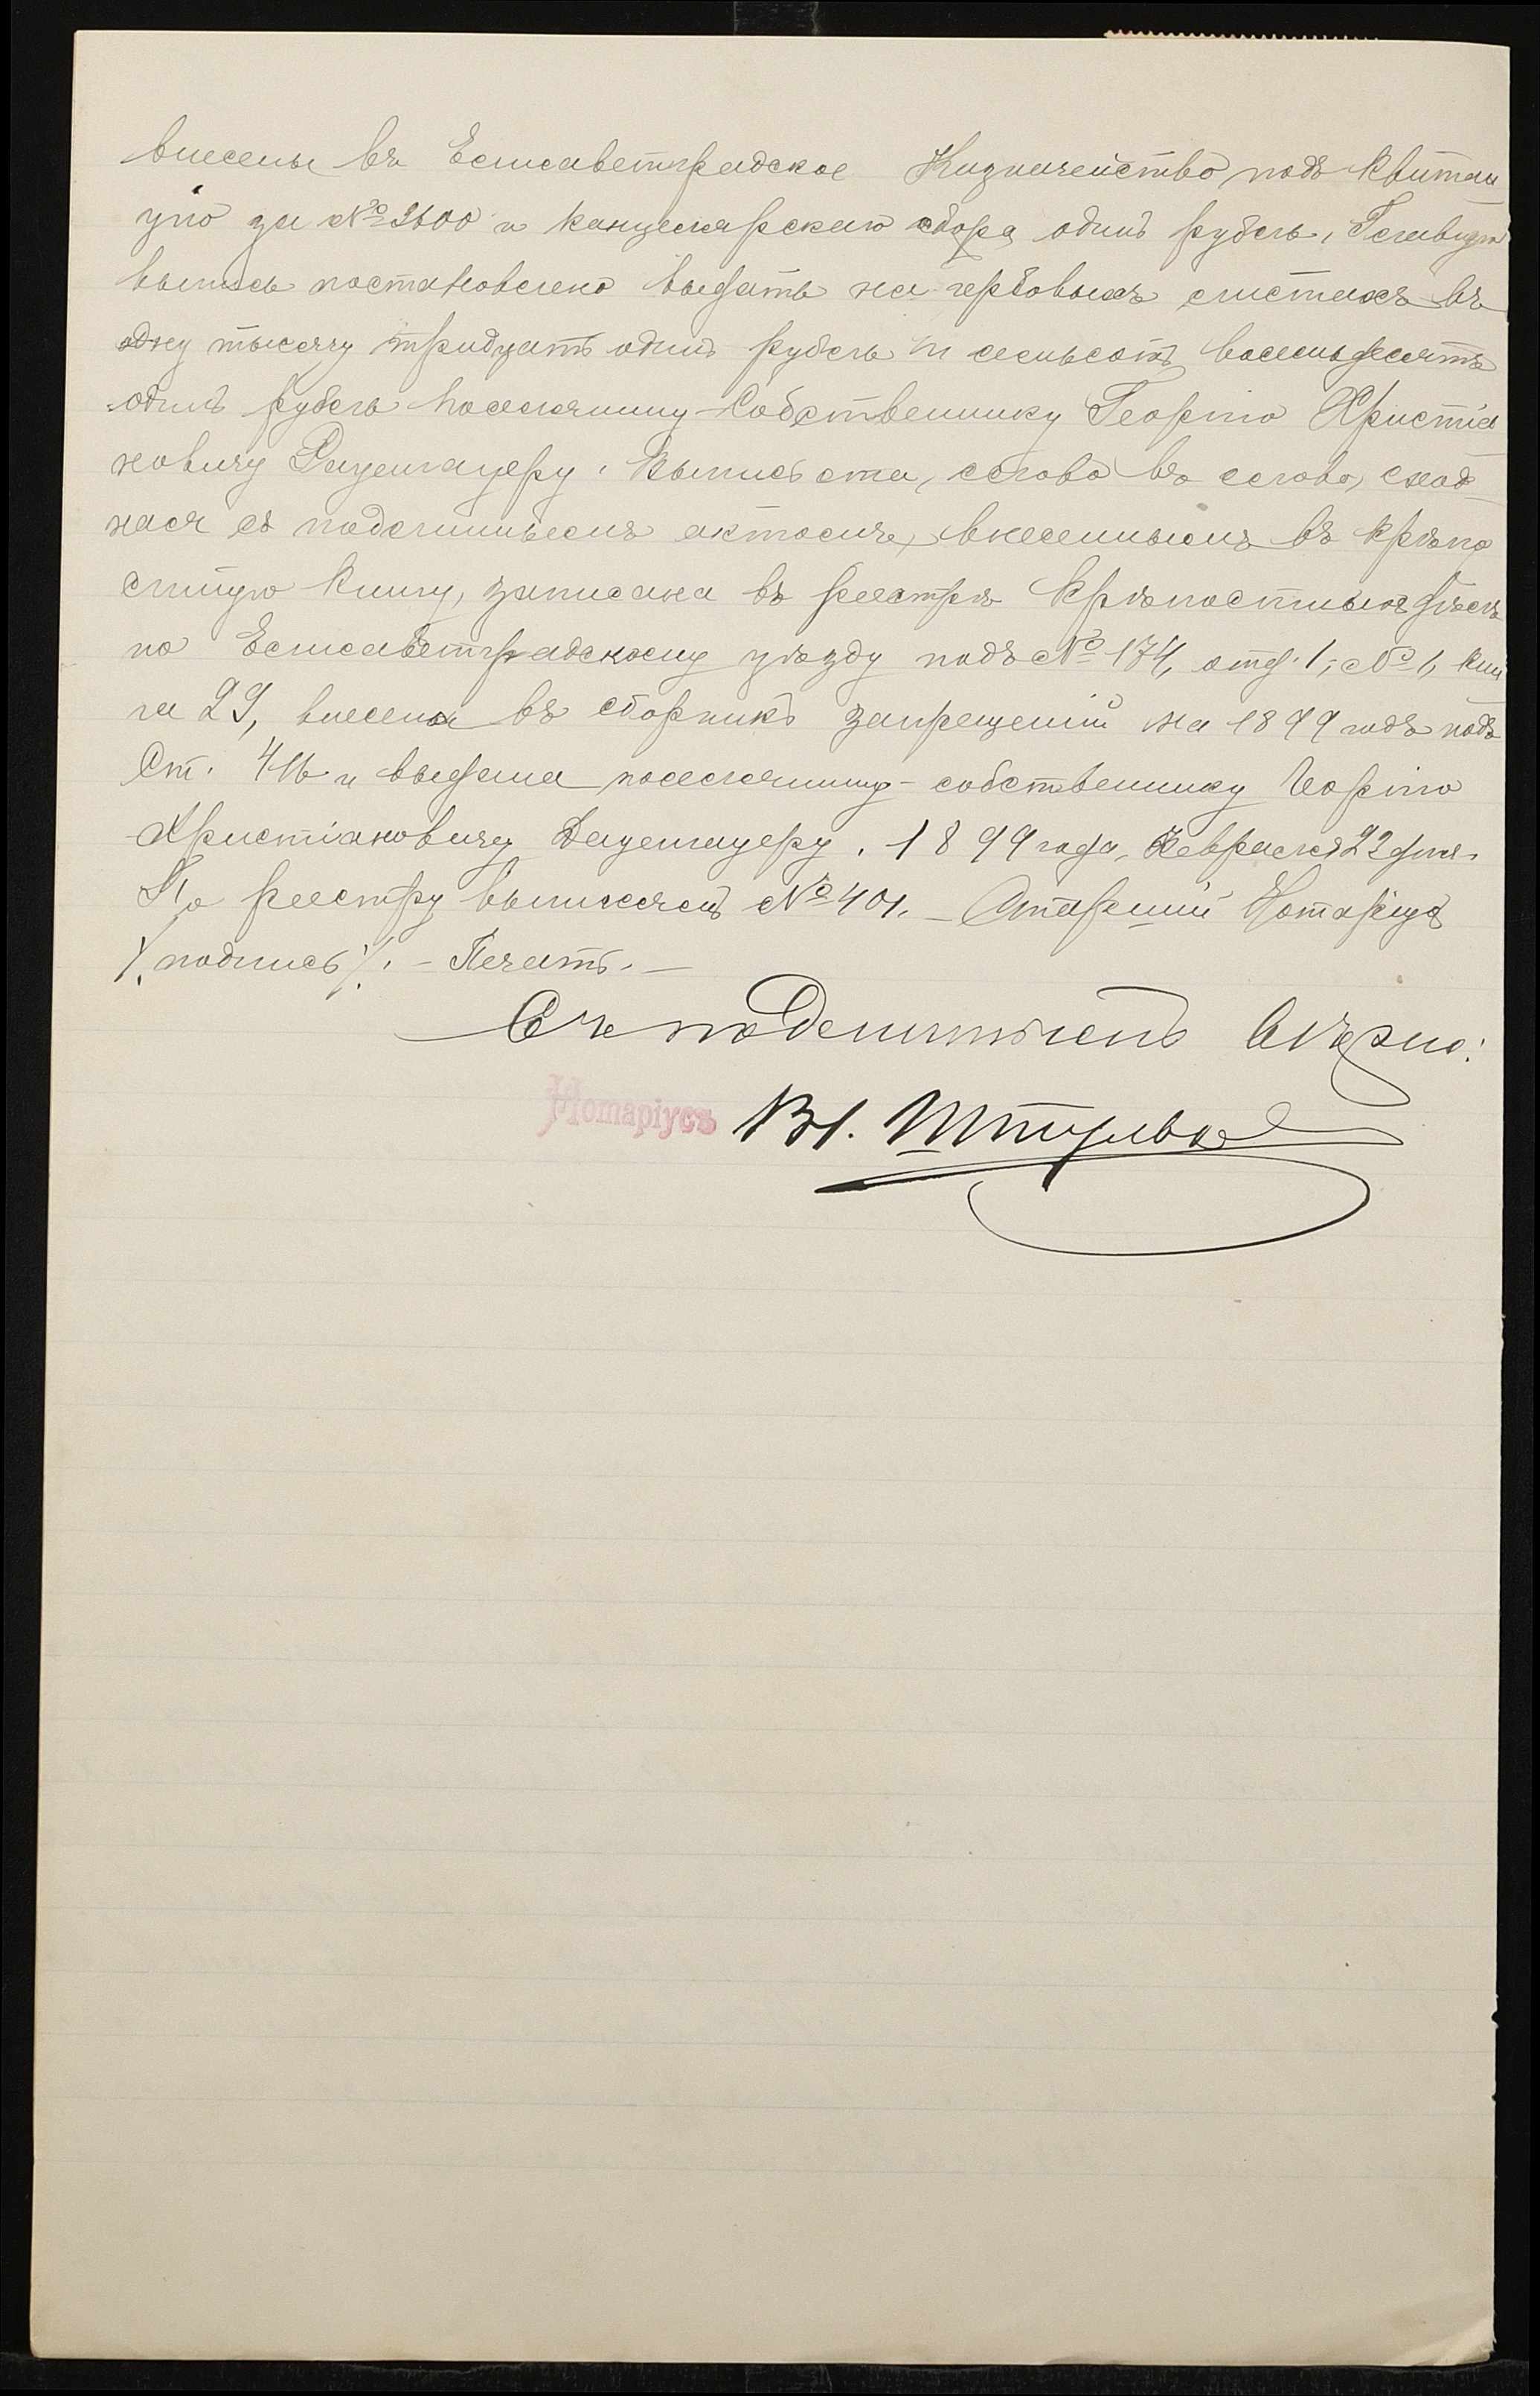 внесены въ Елисаветградское Казначейство подъ квитан
цію за № 3600 и канцелярскаго сбора одинъ рубль, Главную
выпись постановлено выдать на гербовыхъ листахъ въ
одну тысячу тридцать одинъ рубль и семьсотъ восемьдесятъ
одинъ рубль поселянину-собственнику Георгію Христіа
новичу. Выпись эта, слово въ слово, сход
ная съ подлиннымъ актомъ, внесеннымъ въ крѣпо
стную книгу, записана въ реестрѣ крѣпостныхъ дѣлъ
по Елисаветградскому уѣзду подъ № 174, отд. 1, № 1, кни
га 29, внесена въ сборникъ запрещеній на 1899 годъ подъ
Ст. 416 и выдана поселянину-собственнику Георгію
Христіановичу. 1899 года, Февраля 22 дня.
По реестру выписей № 401. – Старшій Нотаріусъ
/. подпись /. – Печать. –
Съ подлиннымъ вѣрно:
Нотаріусъ Вл.